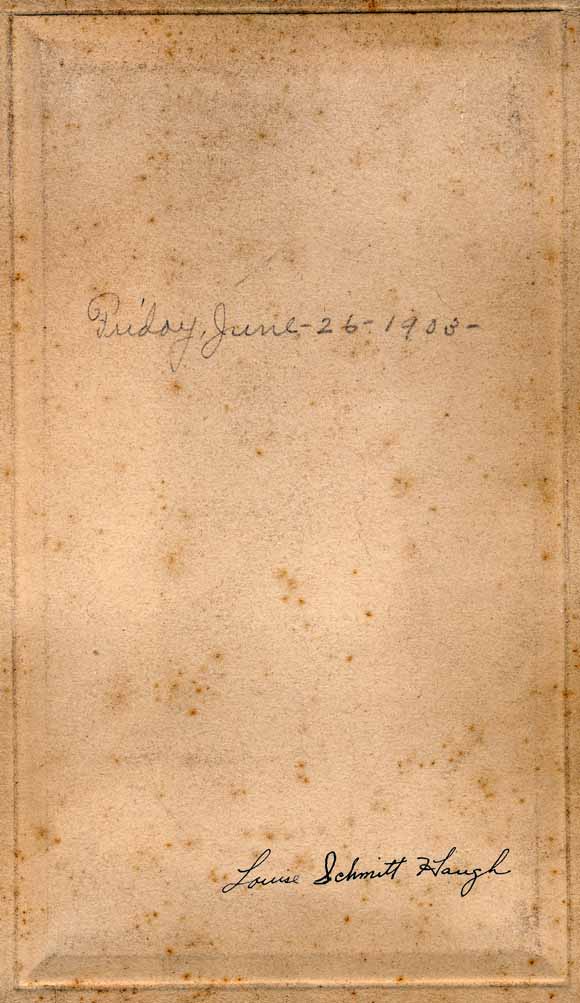 Friday, June-26-1903-
Louise Schmitt Haugh